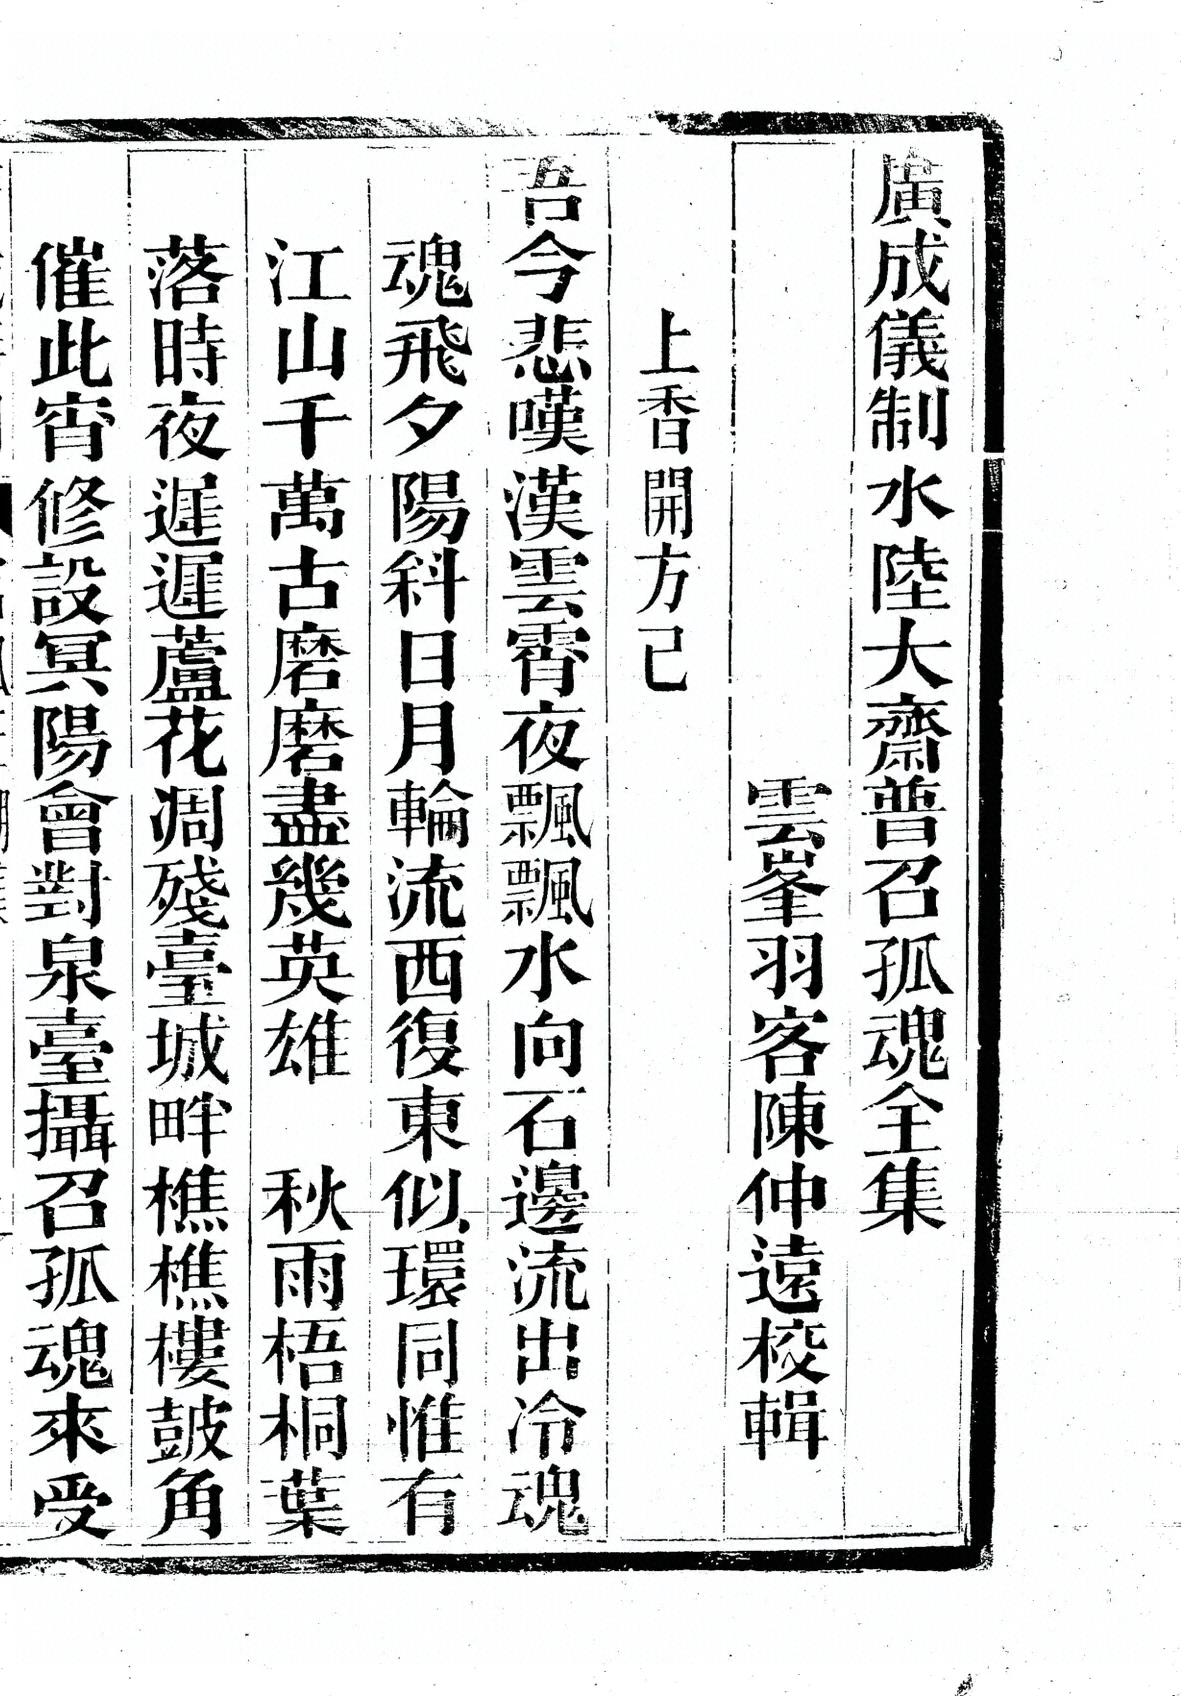 廣成儀制水陸大齋普召孤魂全集
雲峯羽客陳仲遠校輯
上香開方已
吾今悲嘆漢雲霄夜飄飄水向石邊流出冷魂
魂飛夕陽科日月輪流西復東似環同惟有
江山千萬古磨磨盡幾英雄　秋雨梧桐葉
落時夜遲遲蘆花凋殘臺城畔樵樵樓鼓角
催此宵修設冥陽會對泉臺攝召孤魂來受